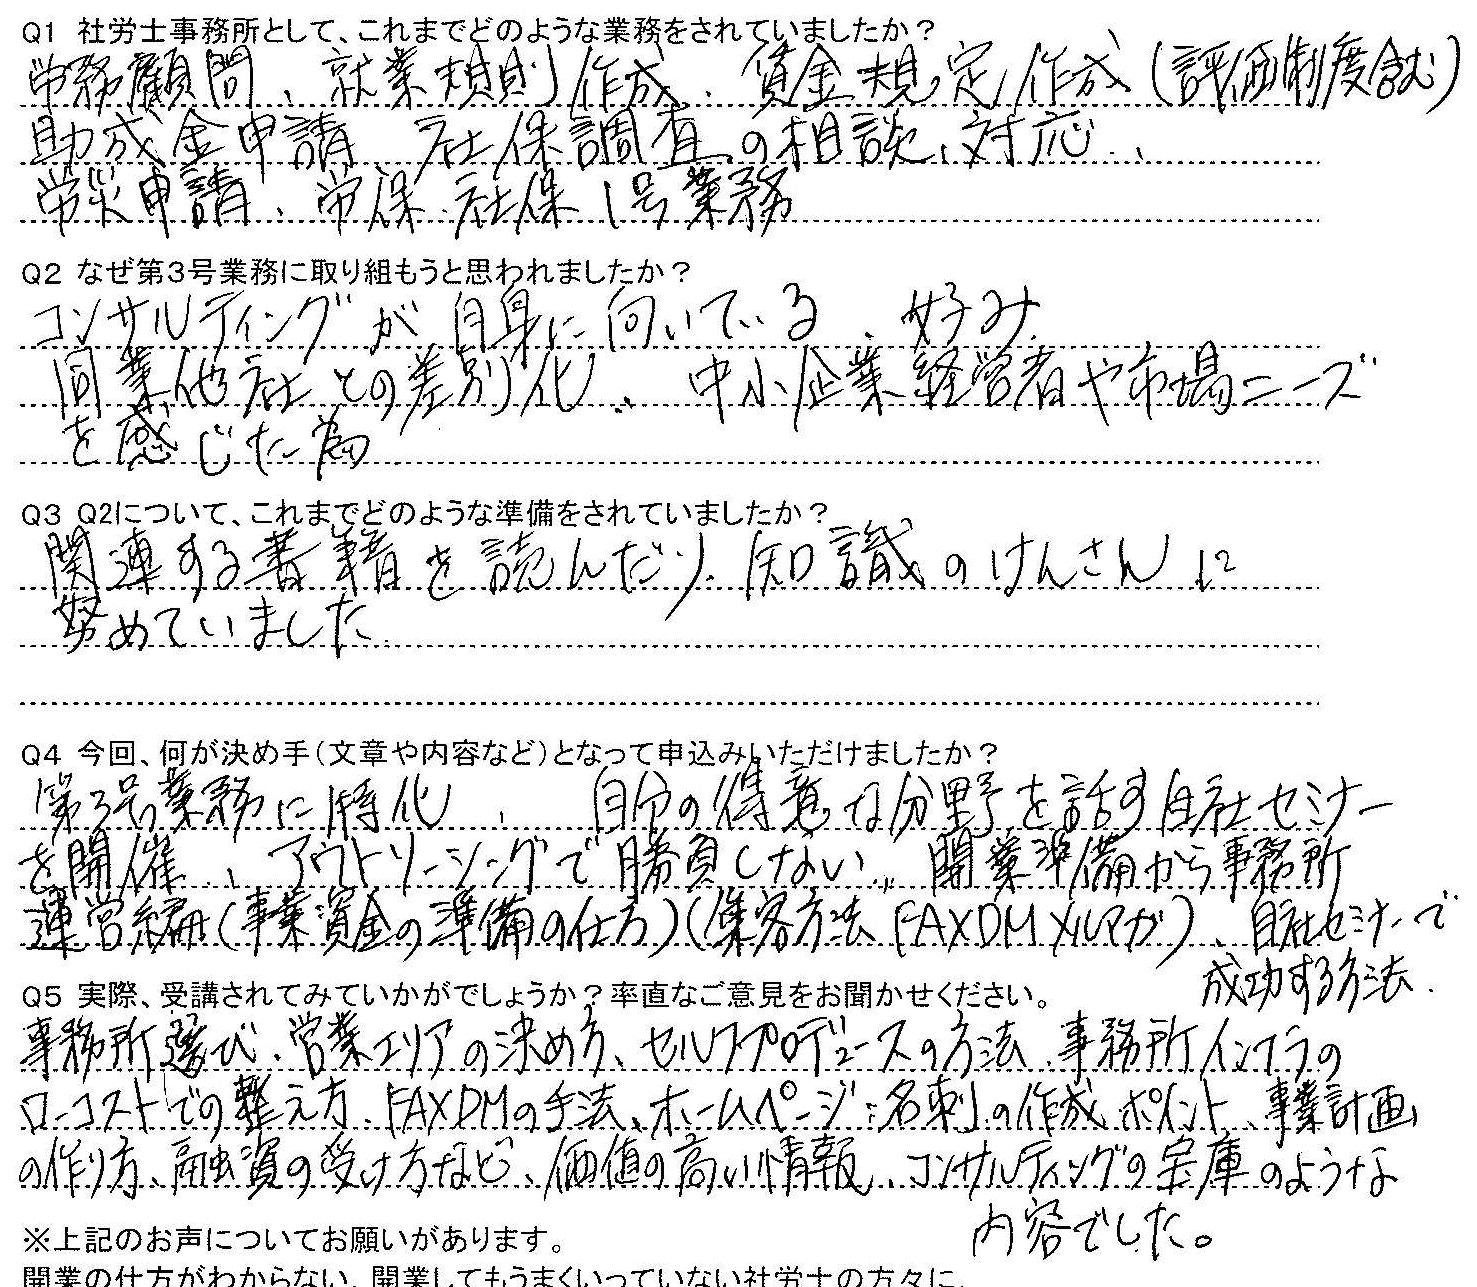 Q1 社労士事務所として、これまでどのような業務をされていましたか？
労務顧問、就業規則作成、賃金規定作成(評価制度含む)
助成金申請、社保調査の相談、対応、
労災申請、労保、社保1号業務
Q2 なぜ第3号業務に取り組もうと思われましたか？
コンサルティングが自身に向いている、好み、
同業他社との差別化、中小企業経営者や市場ニーズ
を感じた為
Q3 Q2について、これまでどのような準備をされていましたか？
関連する書籍を読んだり、知識のけんさんに
努めていました
Q4 今回、何が決め手（文章や内容など）となって申込みいただけましたか？
第3号業務に特化、自分の得意な分野を話す自社セミナー
を開催、アウトソーシングで勝負しない、開業準備から事務所
運営編(事業資金の準備の仕方)(集客方法 FAXDMメルマガ)、自社セミナーで
成功する方法.
Q5 実際、受講されてみていかがでしょうか？率直なご意見をお聞かせください。
事務所選び、営業エリアの決め方、セルフプロデュースの方法、事務所インフラの
ローコストでの整え方、FAXDMの手法、ホームページ、名刺の作成ポイント、事業計画
の作り方、融資の受け方など、価値の高い情報、コンサルティングの宝庫のような
内容でした。
※上記のお声についてお願いがあります。
開業の仕方がわからない、開業してもうまくいっていない社労士の方々に、